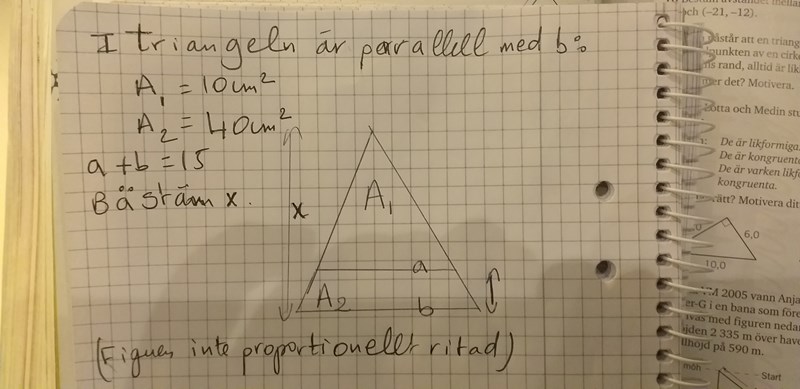 I triangeln är parallell med b:
A₁ = 10cm²
A₂ = 40cm²
a + b = 15
Bästäm x.
x
A₁
a
A₂
b
(Figuen inte proportionellt ritad)
och (-21, -12).
påstår att en triang
punkten av en cirke
ns rand, alltid är lik
er det? Motivera.
otta och Medin stu
De är likformiga.
De är kongruenta
De är varken likfo
kongruenta.
ätt? Motivera ditt
6,0
10,0
VM 2005 vann Anja
er-G i en bana som före
med figuren nedan
jden 2 335 m över have
llhöjd på 590 m.
Start